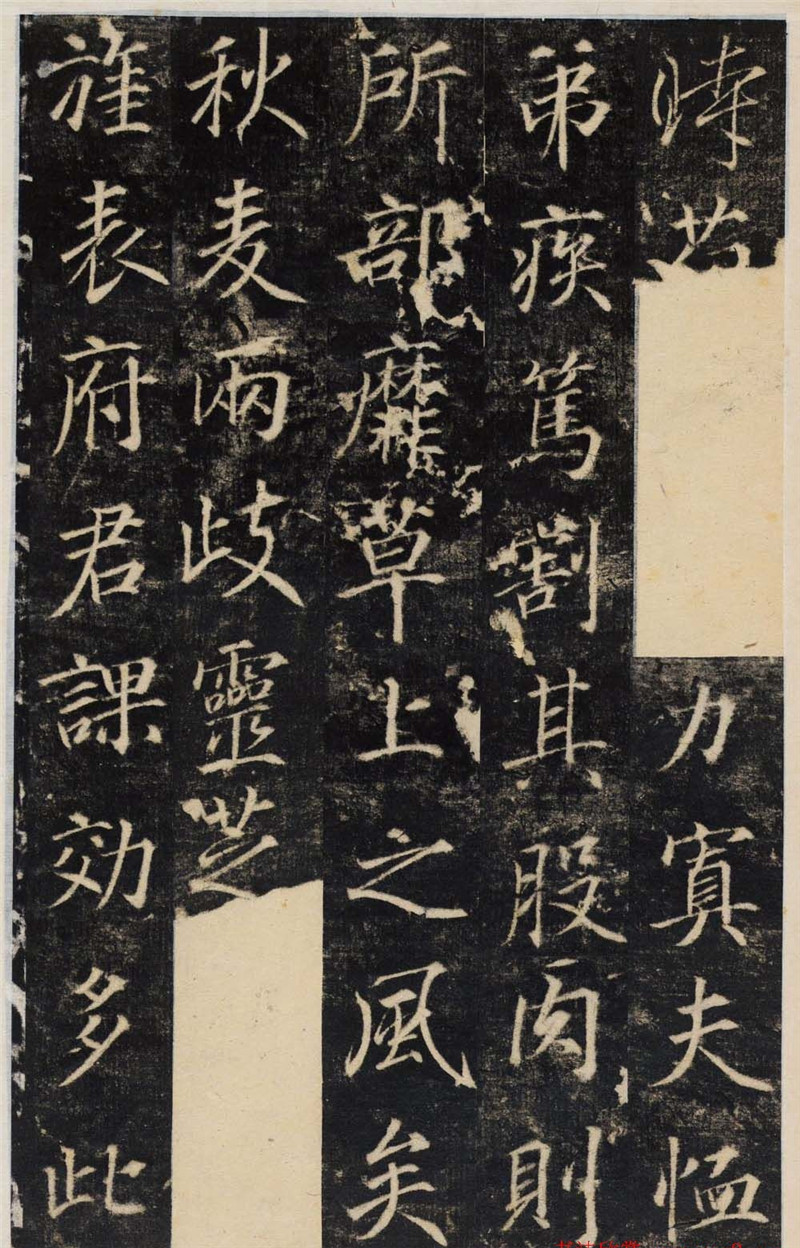 時若力夫恤
弟疾篤割其股肉則
所部靡草上之風矣
秋麦兩歧靈芝
旌表府君課効多此